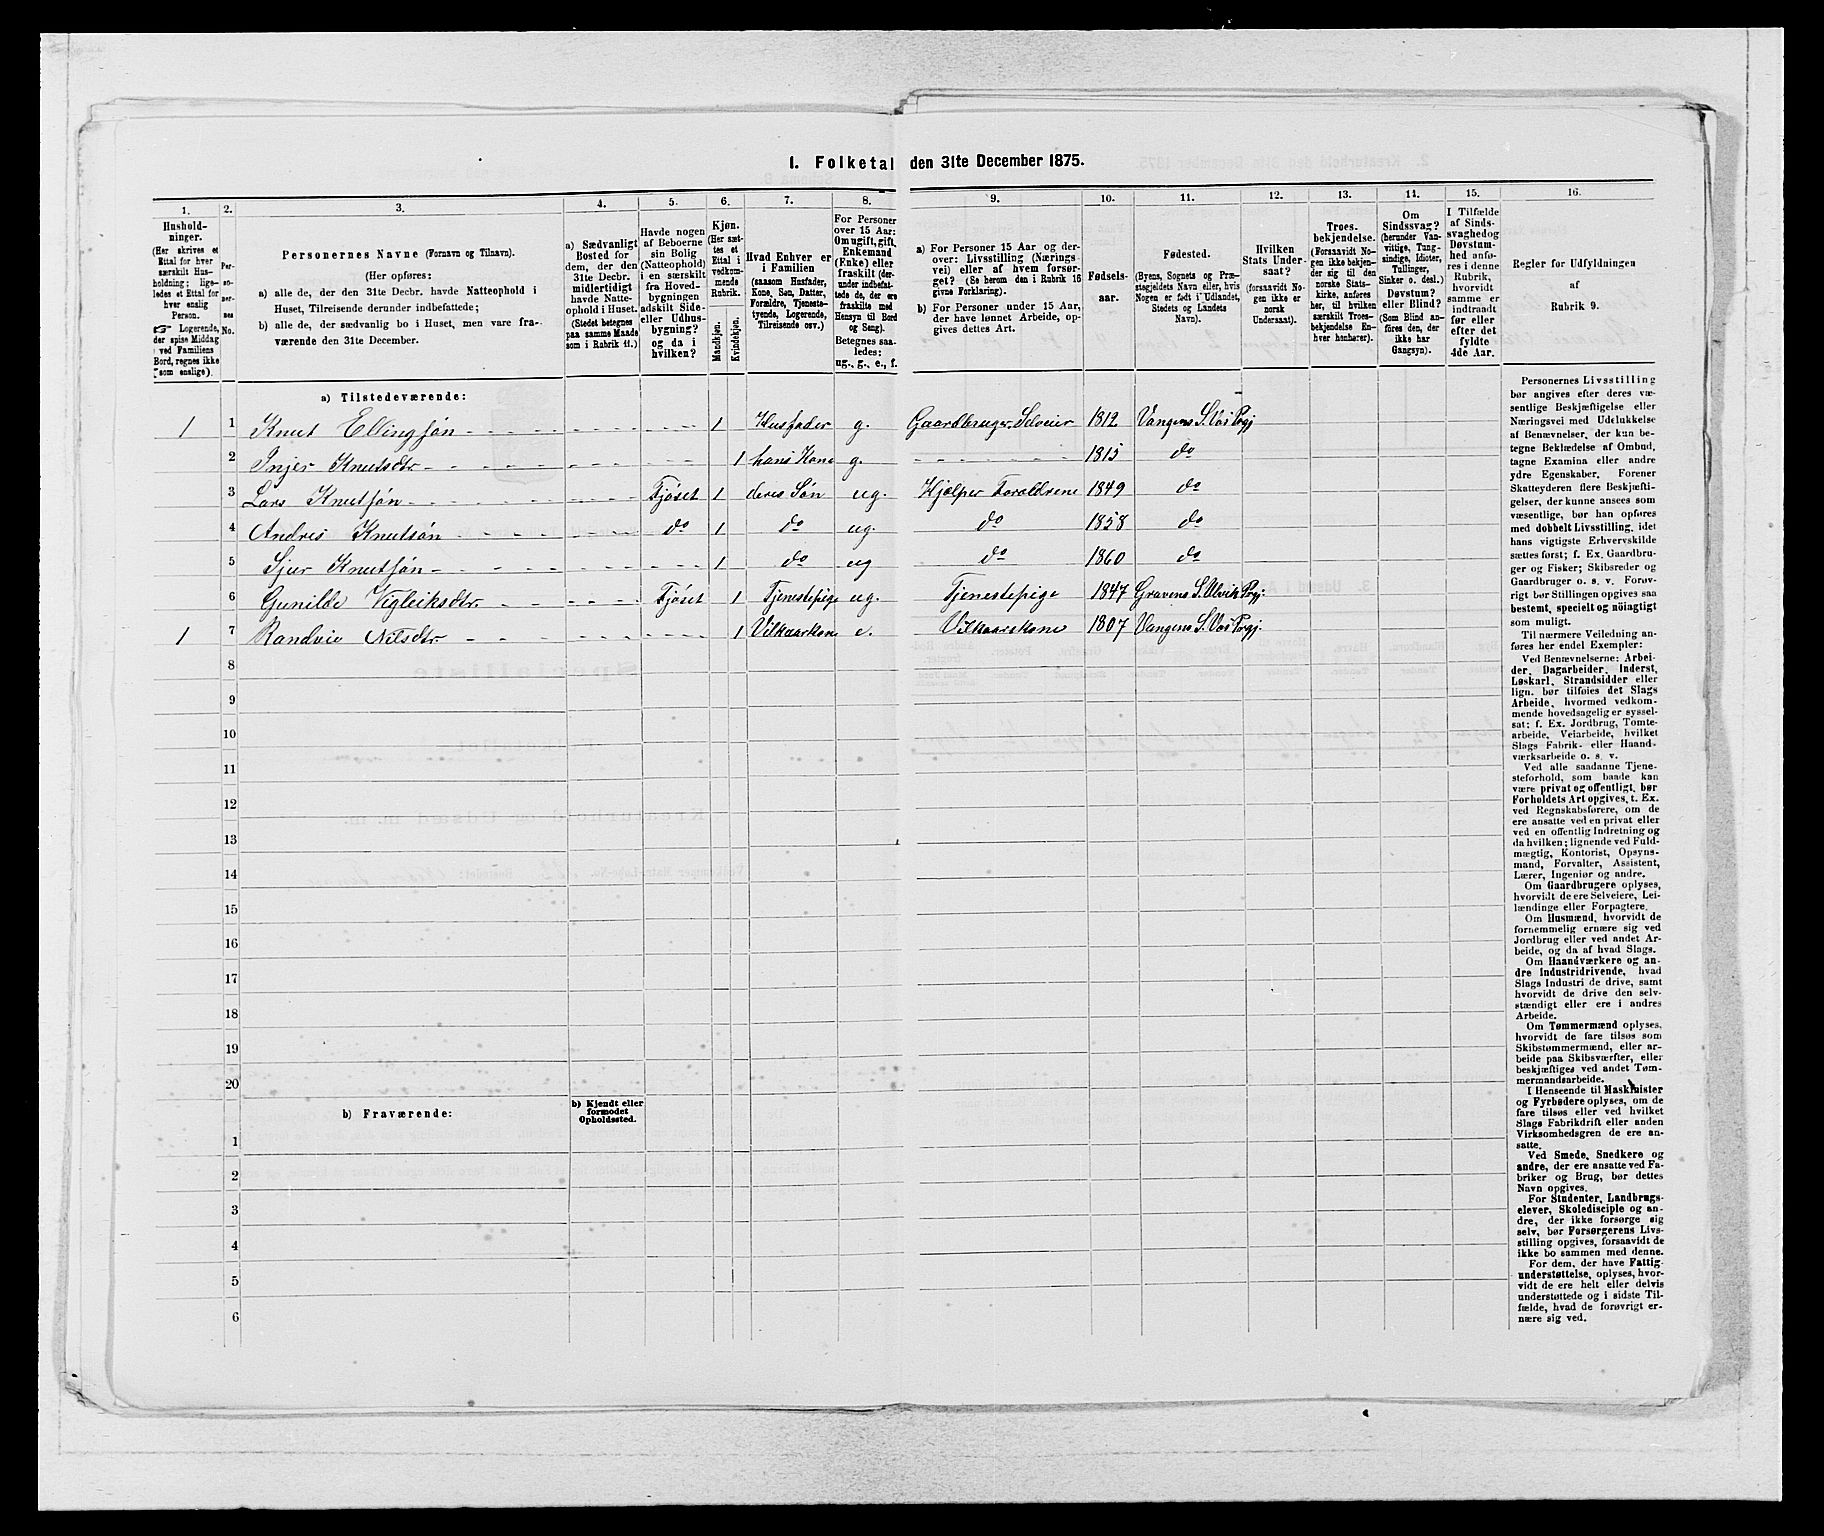 1. Folketal den 31te December 1875.
1. 2. 3. 4. 5. 6. 7. 8. 9. 10. 11. 12. 13. 14. 15. 16.
Hushold-
ninger.
(Her skrives et
Ettal for hver
særskilt Hus-
holdning; lige-
ledes et Ettal for
hver enslig
Person.
☞ Logerende,
der spise Middag
ved Familiens
Bord, regnes ikke
som enslige).
Per-
so-
ner-
nes
No.
Personernes Navne (Fornavn og Tilnavn).
(Her opføres:
a) alle de, der den 31te Decbr. havde Natteophold i
Huset, Tilreisende derunder indbefattede;
b) alle de, der sædvanlig bo i Huset, men vare fra-
værende den 31te December.
a) Sædvanligt
Bosted for
dem, der den
31te Decbr.
midlertidigt
havde Natte-
ophold i Huset.
(Stedet betegnes
paa samme Maade
som i Rubrik 11.)
Havde nogen
af Beboerne
sin Bolig
(Natteophold)
i en særskilt
fra Hoved-
bygningen
adskilt Side-
eller Udhus-
bygning?
og da i
hvilken?
Kjøn.
(Her sæt-
tes et
Ettal i
vedkom-
mende
Rubrik.
Mandkjøn.
Kvindekjøn.
Hvad Enhver er
i Familien
(saasom Husfader,
Kone, Søn, Datter,
Forældre, Tjeneste-
tyende, Logerende,
Tilreisende osv.)
For Personer
over 15 Aar:
Om ugift, gift,
Enkemand
(Enke) eller
fraskilt (der-
under indbefat-
tede de, der ere
fraskilte med
Hensyn til Bord
og Seng).
Betegnes saa-
ledes:
ug., g., e., f.
a) For Personer 15 Aar og der-
over: Livsstilling (Nærings-
vei) eller af hvem forsør-
get? (Se herom den i Rubrik 16
givne Forklaring).
b) For Personer under 15 Aar,
der have lønnet Arbeide, op-
gives dettes Art.
Fødsels-
aar.
Fødested.
(Byens, Sognets og Præ-
stegjeldets Navn eller, hvis
Nogen er født i Udlandet,
Stedets og Landets
Navn).
Hvilken
Stats Under-
saat?
(forsaavidt No-
gen ikke er
norsk
Undersaat).
Troes-
bekjendelse.
(Forsaavidt No-
gen ikke bekjen-
der sig til den
norske Stats-
kirke, anføres
her, til hvilken
særskilt Troes-
bekjendelse En-
hver henhører).
Om
Sindssvag?
(herunder Van-
vittige, Tung-
sindige, Idioter,
Tullinger,
Sinker o. desl.)
Døvstum?
eller Blind?
(Som Blind an-
føres den, der
ikke har
Gangsyn).
I Tilfælde
af Sinds-
svaghed og
Døvstum-
hed anfø-
res i denne
Rubrik,
hvorvidt
samme er
indtraadt
før eller
efter det
fyldte
4de Aar.
Regler for Udfyldningen
af
Rubrik 9.
a) Tilstedeværende:
1 1 Knut Ellingsøn 1 Husfader g. Gaardbruger. Selveier 1812 Vangens S. Vos Prgj
2 Injer Knutsdtr 1 hans Kone g. 1815 do
3 Lars Knutsøn Fjøset 1 deres Søn ug. Hjelper Forældrene 1849 do
4 Andris Knutsøn do 1 do ug. do 1858 do
5 Sjur Knutsøn 1 do ug do 1860 do
6 Gunilde Vigleiksdtr. Fjøset 1 Tjenestepige ug. Tjenestepige 1847 Gravens S. Ulvik Prgj:
1 7 Randvie Nilsdtr 1 Vilkaarkone e. Vilkaarskone 1807 Vangens S. Vos Prgj.
8
9
10
11
12
13
14
15
16
17
18
19
20
b) Fraværende:
b) Kjendt eller
formodet
Opholdssted.
1
2
3
4
5
6
Personernes Livsstilling
bør angives efter deres væ-
sentlige Beskjæftigelse eller
Næringsvei med Udelukkelse
af Benævnelser, der kun be-
tegne Beklædelse af Ombud,
tagne Examina eller andre
ydre Egenskaber. Forener
Skatteyderen flere Beskjæfti-
gelser, der kunne ansees som
væsentlige, bør han opføres
med dobbelt Livsstilling, idet
hans vigtigste Erhvervskilde
sættes først; f. Ex. Gaardbru-
ger og Fisker; Skibsreder og
Gaardbruger o. s. v. Forøv-
rigt bør Stillingen opgives saa
bestemt, specielt og nøiagtigt
som muligt.
Til nærmere Veiledning an-
føres her endel Exempler:
Ved Benævnelserne: Arbei-
der, Dagarbeider, Inderst,
Løskarl, Strandsidder eller
lign. bør tilføies det Slags
Arbeide, hvormed vedkom-
mende hovedsagelig er syssel-
sat; f. Ex. Jordbrug, Tomte-
arbeide, Veiarbeide, hvilket
Slags Fabrik- eller Haand-
værksarbeide o. s. v.
Ved alle saadanne Tjene-
steforhold, som baade kan
være privat og offentligt, bør
Forholdets Art opgives, t. Ex.
ved Regnskabsførere, om de
ere ansatte ved en privat eller
ved en offentlig Indretning og
da hvilken; lignende ved Fuld-
mægtig, Kontorist, Opsyns-
mand, Forvalter, Assistent,
Lærer, Ingeniør og andre.
Om Gaardbrugere oplyses,
hvorvidt de ere Selveiere, Lei-
lændinge eller Forpagtere.
Om Husmænd, hvorvidt de
fornemmelig ernære sig ved
Jordbrug eller ved andet Ar-
beide, og da af hvad Slags.
Om Haandværkere og an-
dre Industridrivende, hvad
Slags Industri de drive, samt
hvorvidt de drive den selv-
stændigt eller ere i andres
Arbeide.
Om Tømmermænd oplyses,
hvorvidt de fare tilsøs som
Skibstømmermænd, eller ar-
beide paa Skibsværfter, eller
beskjæftiges ved andet Tøm-
mermandsarbeide.
I Henseende til Maskinister
og Fyrbødere oplyses, om de
fare tilsøs eller ved hvilket
Slags Fabrikdrift eller anden
Virksomhedsgren de ere an-
satte.
Ved Smede, Snedkere og
andre, der ere ansatte ved Fa-
briker og Brug, bør dettes
Navn opgives.
For Studenter, Landbrugs-
elever, Skoledisciple og an-
dre, der ikke forsørge sig
selv, bør Forsørgerens Livs-
stilling opgives, forsaavidt de
ikke bo sammen med denne.
For dem, der have Fattig-
understøttelse, oplyses, hvor-
vidt de ere helt eller delvis
understøttede og i sidste Til-
fælde, hvad de forøvrigt er-
nære sig ved.